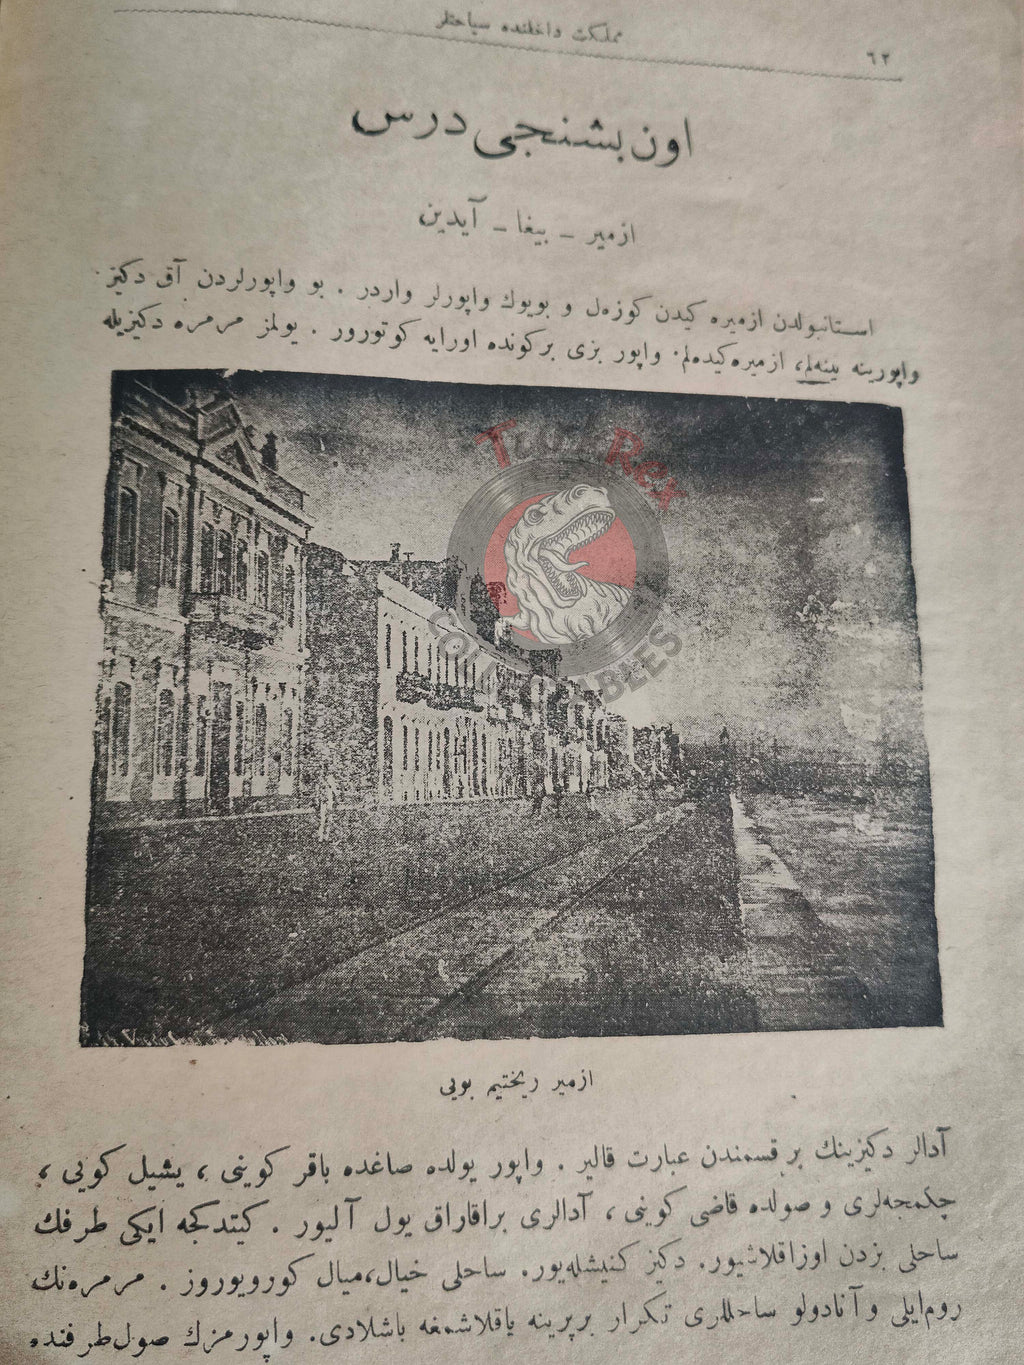 مملكت داخلنده سياحتلر
٦٢
اون بشنجی درس
ازمير ـ بيغا ـ آيدين
استانبولدن ازميره كيدن كوزەل و بويوك واپورلر واردر . بو واپورلردن آق دكيز
واپورينه بينەلم، ازميره كيدەلم. واپور بزی بر كونده اورايه كوتورور . يولمز مرمره دكيزيله
TurnRex
COLLECTABLES
ازمير ريختيم بويی
آدالر دكيزينك بر قسمندن عبارت قالير . واپور يولده صاغده باقر كوينی ، يشيل كويی ،
چكمجەلری و صولده قاضی كوينی ، آدالری براقاراق يول آليور . كيتدكجه ايكی طرفك
ساحلی بزدن اوزاقلاشيور. دكيز كنيشلەيور. ساحلی خيال،ميال كورويوروز . مرمرەنك
روم‌ايلی و آنادولو ساحللری تكرار بربرينه ياقلاشمغه باشلادی. واپورمزك صول طرفنده